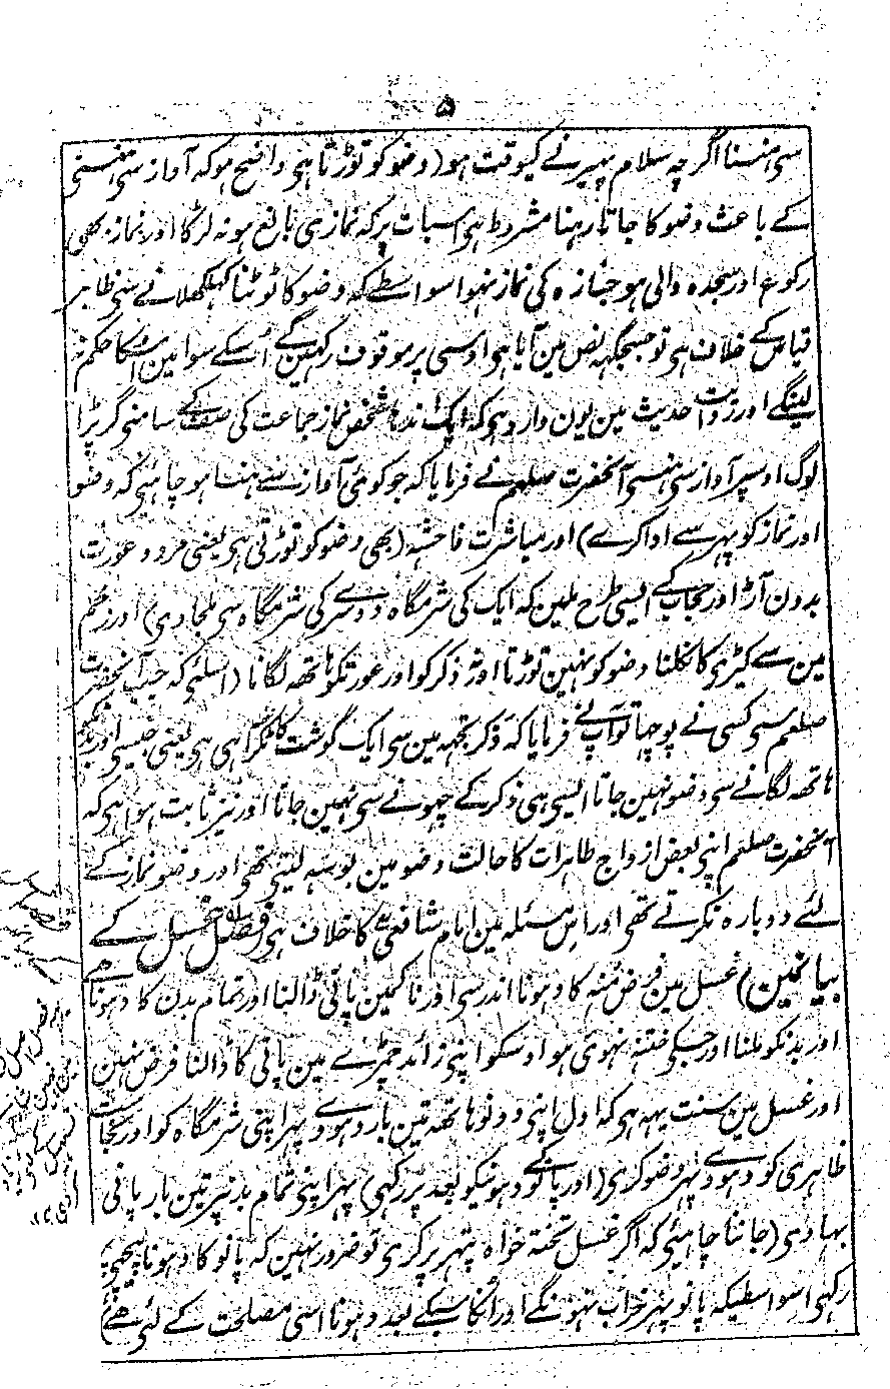 ۵
سی ہنسنا اگر چہ سلام پہیرنے کیوقت ہو) وضو کو توڑتا ہی واضح ہو کہ آواز سی ہنسنی
کے باعث وضو کا جاتا رہنا مشروط ہی اسبات پر کہ نمازی بالغ ہو نہ لڑکا اور نماز بھی
رکوع اور سجدہ والی ہو جنازہ کی نماز نہو اسواسطے کہ وضو کا ٹوٹنا کہلکھلانے سی ظاہر
قیاس کے خلاف ہی تو جسجگہہ نص مین آیا ہی اوسی پر موقوف رکہین گے اُسکے سوا مین اسکا حکم نہ
لینگے اور روایت حدیث مین یون وارد ہی کہ ایک اندہا شخص نماز جماعت کی صف کے سامنی گر پڑا
لوگ اوسپر آواز سی ہنسی آنحضرت صلعم نے فرمایا کہ جو کوئی آواز سے ہنسا ہو چاہئی کہ وضو
اور نماز کو پہر سے ادا کرے) اور مباشرت فاحشہ (بھی وضو کو توڑتی ہی یعنی مرد و عورت
بدون آڑ اور حجاب کے ایسی طرح ملین کہ ایک کی شرمگاہ دوسرے کی شرمگاہ سی ملجاوی) اور زخم
مین سے کیڑی کا نکلنا وضو کو نہین توڑتا اور ذکر کو اور عورتکو ہاتھہ لگانا (اسلئی کہ جب آنحضرت
صلعم سی کسی نے پوچہا تو آپ نے فرمایا کہ ذکر تجہہ مین سی ایک گوشت کا ٹکڑا ہی ہی یعنی جیسی اور بدنکو
ہاتھہ لگانے سی وضو نہین جاتا ایسی ہی ذکر کے چہونے سی نہین جاتا اور نیز ثابت ہوا ہی کہ
آنحضرت صلعم اپنی بعض ازواج طاہرات کا حالت وضو مین بوسہ لیتی تھی اور وضو نماز کے
لئے دوبارہ نکرتے تھی اور اس مسئلہ مین امام شافعی کا خلاف ہی) فصل غسل کے
بیانمین) غسل مین فرض مُنہ کا دہونا اندر سی اور ناکمین پانی ڈالنا اور تمام بدن کا دہونا ہے
اور بدنکو ملنا اور جسکی ختنہ نہوی ہو اوسکو اپنی زائد چمڑے مین پانی کا ڈالنا فرض نہین
اور غسل مین سنت یہہ ہی کہ اول اپنی دونو ہاتھہ تین بار دہووے پہر اپنی شرمگاہ کو اور نجاست
ظاہری کو دہووے پہر وضو کری (اور پانوکے دہونیکو بعد پر رکہی) پہر اپنی تمام بدنپر تین بار پانی
بہادی (جاننا چاہئی کہ اگر غسل تختہ خواہ پتہر پر کری تو ضرور نہین کہ پانو کا دہونا پیچہی
رکہی اسواسطیکہ پانو پہر خراب نہونگے اور انکا سبکے بعد دہونا اسی مصلحت کے لئی ہے)